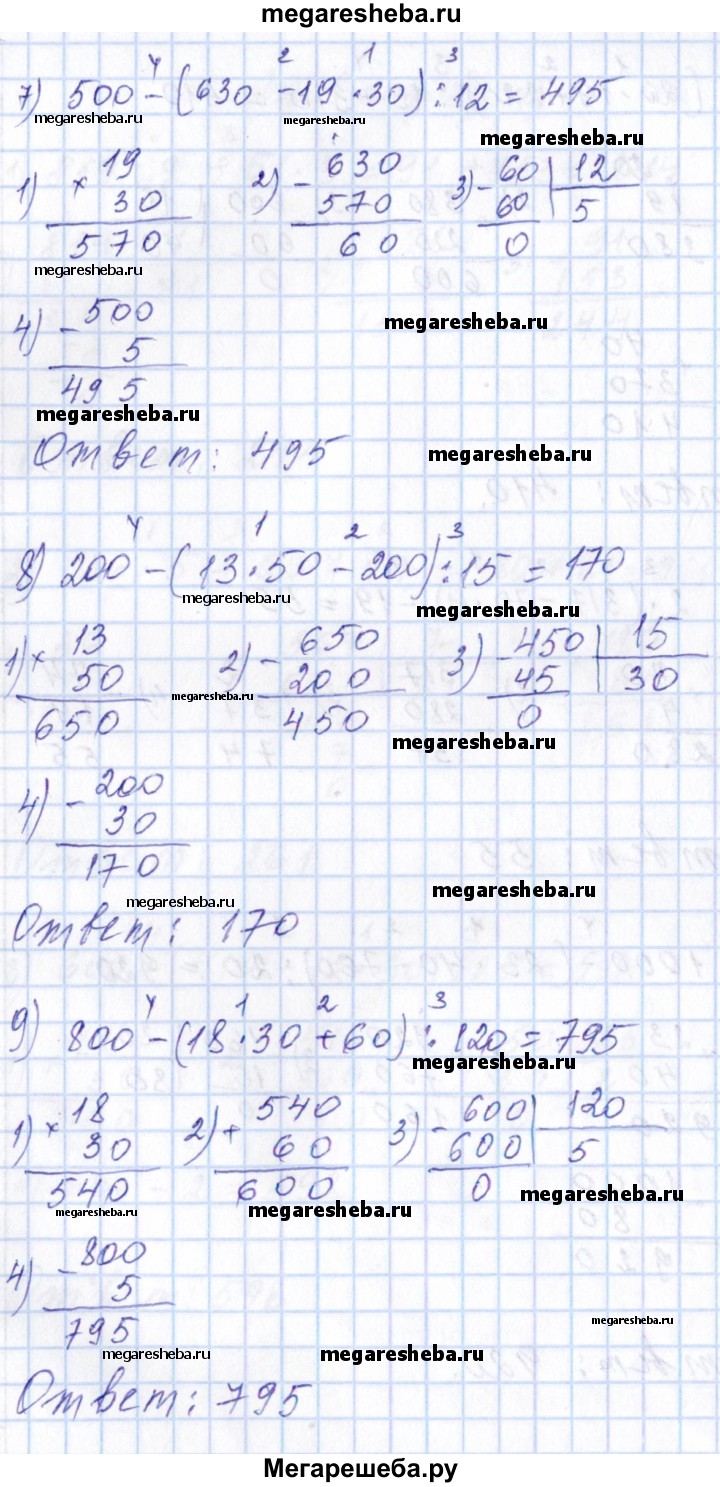 megaresheba.ru
4 2 1 3
7) 500 - (630 - 19 · 30) : 12 = 495
megaresheba.ru megaresheba.ru megaresheba.ru
1) × 19 2) - 630 3) - 60 | 12
30 570 60 5
570 60 0
megaresheba.ru
4) - 500 megaresheba.ru
5
495
megaresheba.ru
Ответ: 495 megaresheba.ru
4 1 2 3
8) 200 - (13 · 50 - 200) : 15 = 170
megaresheba.ru megaresheba.ru
1) × 13 2) - 650 3) - 450 | 15
50 200 45 30
650 450 0
megaresheba.ru megaresheba.ru
4) - 200
30
170
megaresheba.ru megaresheba.ru
Ответ: 170
4 1 2 3
9) 800 - (18 · 30 + 60) : 120 = 795
megaresheba.ru
1) × 18 2) + 540 3) - 600 | 120
30 60 600 5
540 600 0
megaresheba.ru megaresheba.ru megaresheba.ru
4) - 800
5
795
megaresheba.ru megaresheba.ru megaresheba.ru
Ответ: 795
Мегарешеба.ру